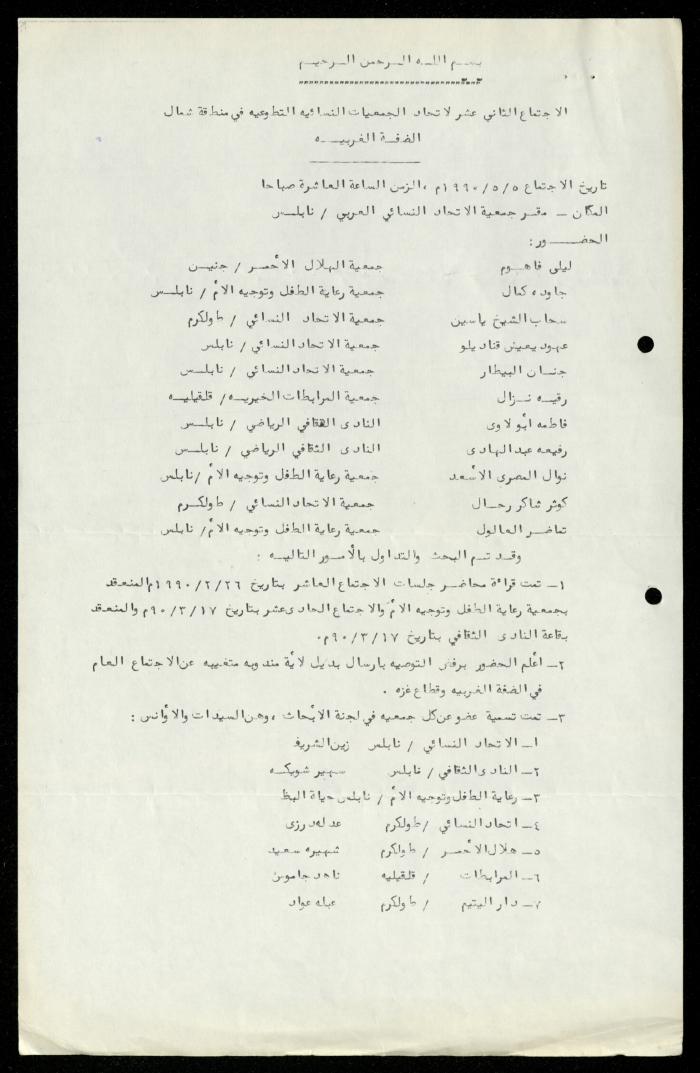 بسم اللـه الـرحمن الـرحيـم
الاجتماع الثاني عشر لاتحاد الجمعيات النسائيه التطوعيه في منطقة شمال
الضفـة الغربيـــه
تاريخ الاجتماع ١٩٩٠/٥/٥م ،الزمن الساعة العاشرة صباحا
المكان ــ مقـر جمعية الاتحاد النسائي العربي / نابلـس
الحضـــور :
ليلى فاهـوم جمعية الهلال الأحمـر / جنيـن
جاوده كمال جمعية رعاية الطفل وتوجيه الأم / نابلـس
سحاب الشيخ ياسين جمعية الاتحاد النسائي / طولكرم
عهود يعيش قناديلو جمعية الاتحاد النسائي / نابلس
جنـان البيطار جمعية الاتحاد النسائي / نابلـس
رقيـه نـزال جمعية المرابطات الخيريـه / قلقيليـه
فاطمه أبو لاوى النادى الثقافي الرياضي / نابلـس
رفيعه عبد الهادى النادى الثقافي الرياضي / نابلـس
نوال المصرى الأسعد جمعية رعاية الطفل وتوجيه الأم /نابلس
كوثر شاكر رحـال جمعية الاتحاد النسائي / طولكـرم
تماضر العالول جمعية رعاية الطفل وتوجيه الأم / نابلس
وقـد تـم البحث والتداول بالأمـور التاليـه :
١ــ تمت قراءة محاضـر جلسات الاجتماع العاشر بتاريخ ١٩٩٠/٢/٢٦م المنعقد
بجمعية رعاية الطفل وتوجيه الأم والاجتماع الحادى عشر بتاريخ ٩٠/٣/١٧م والمنعقد
بقاعة النادى الثقافي بتاريخ ٩٠/٣/١٧م.
٢ــ أعلم الحضور برفض التوصيه بارسال بديل لأية مندوبه متغيبه عن الاجتماع العام
في الضفة الغربيه وقطاع غزه .
٣ــ تمت تسمية عضو عن كل جمعيه في لجنة الأبحاث ، وهن السيدات والأوانس :
١ــ الاتحاد النسائي / نابلس زين الشريف
٢ــ النادى الثقافي / نابلس سهير شويكـه
٣ــ رعاية الطفل وتوجيه الأم / نابلس حياة البظ
٤ــ اتحاد النسائي / طولكرم عدله درزى
٥ــ هلال الأحمـر / طولكرم شهيره سعيد
٦ــ المرابطات / قلقيليه ناهد جاموس
٧ــ دار اليتيم / طولكرم عبله عواد